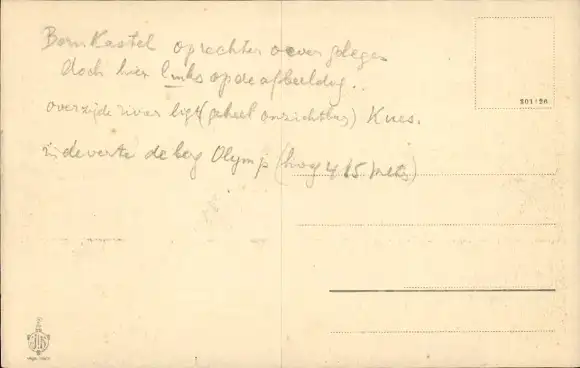 BernKastel op rechter oever gelegen
doch hier links op de afbeeldig..
overzijde rivier ligt (geheel onzichtbaar) Kues.
in de verte de berg Olymp (hoog 415 meter)
301/26